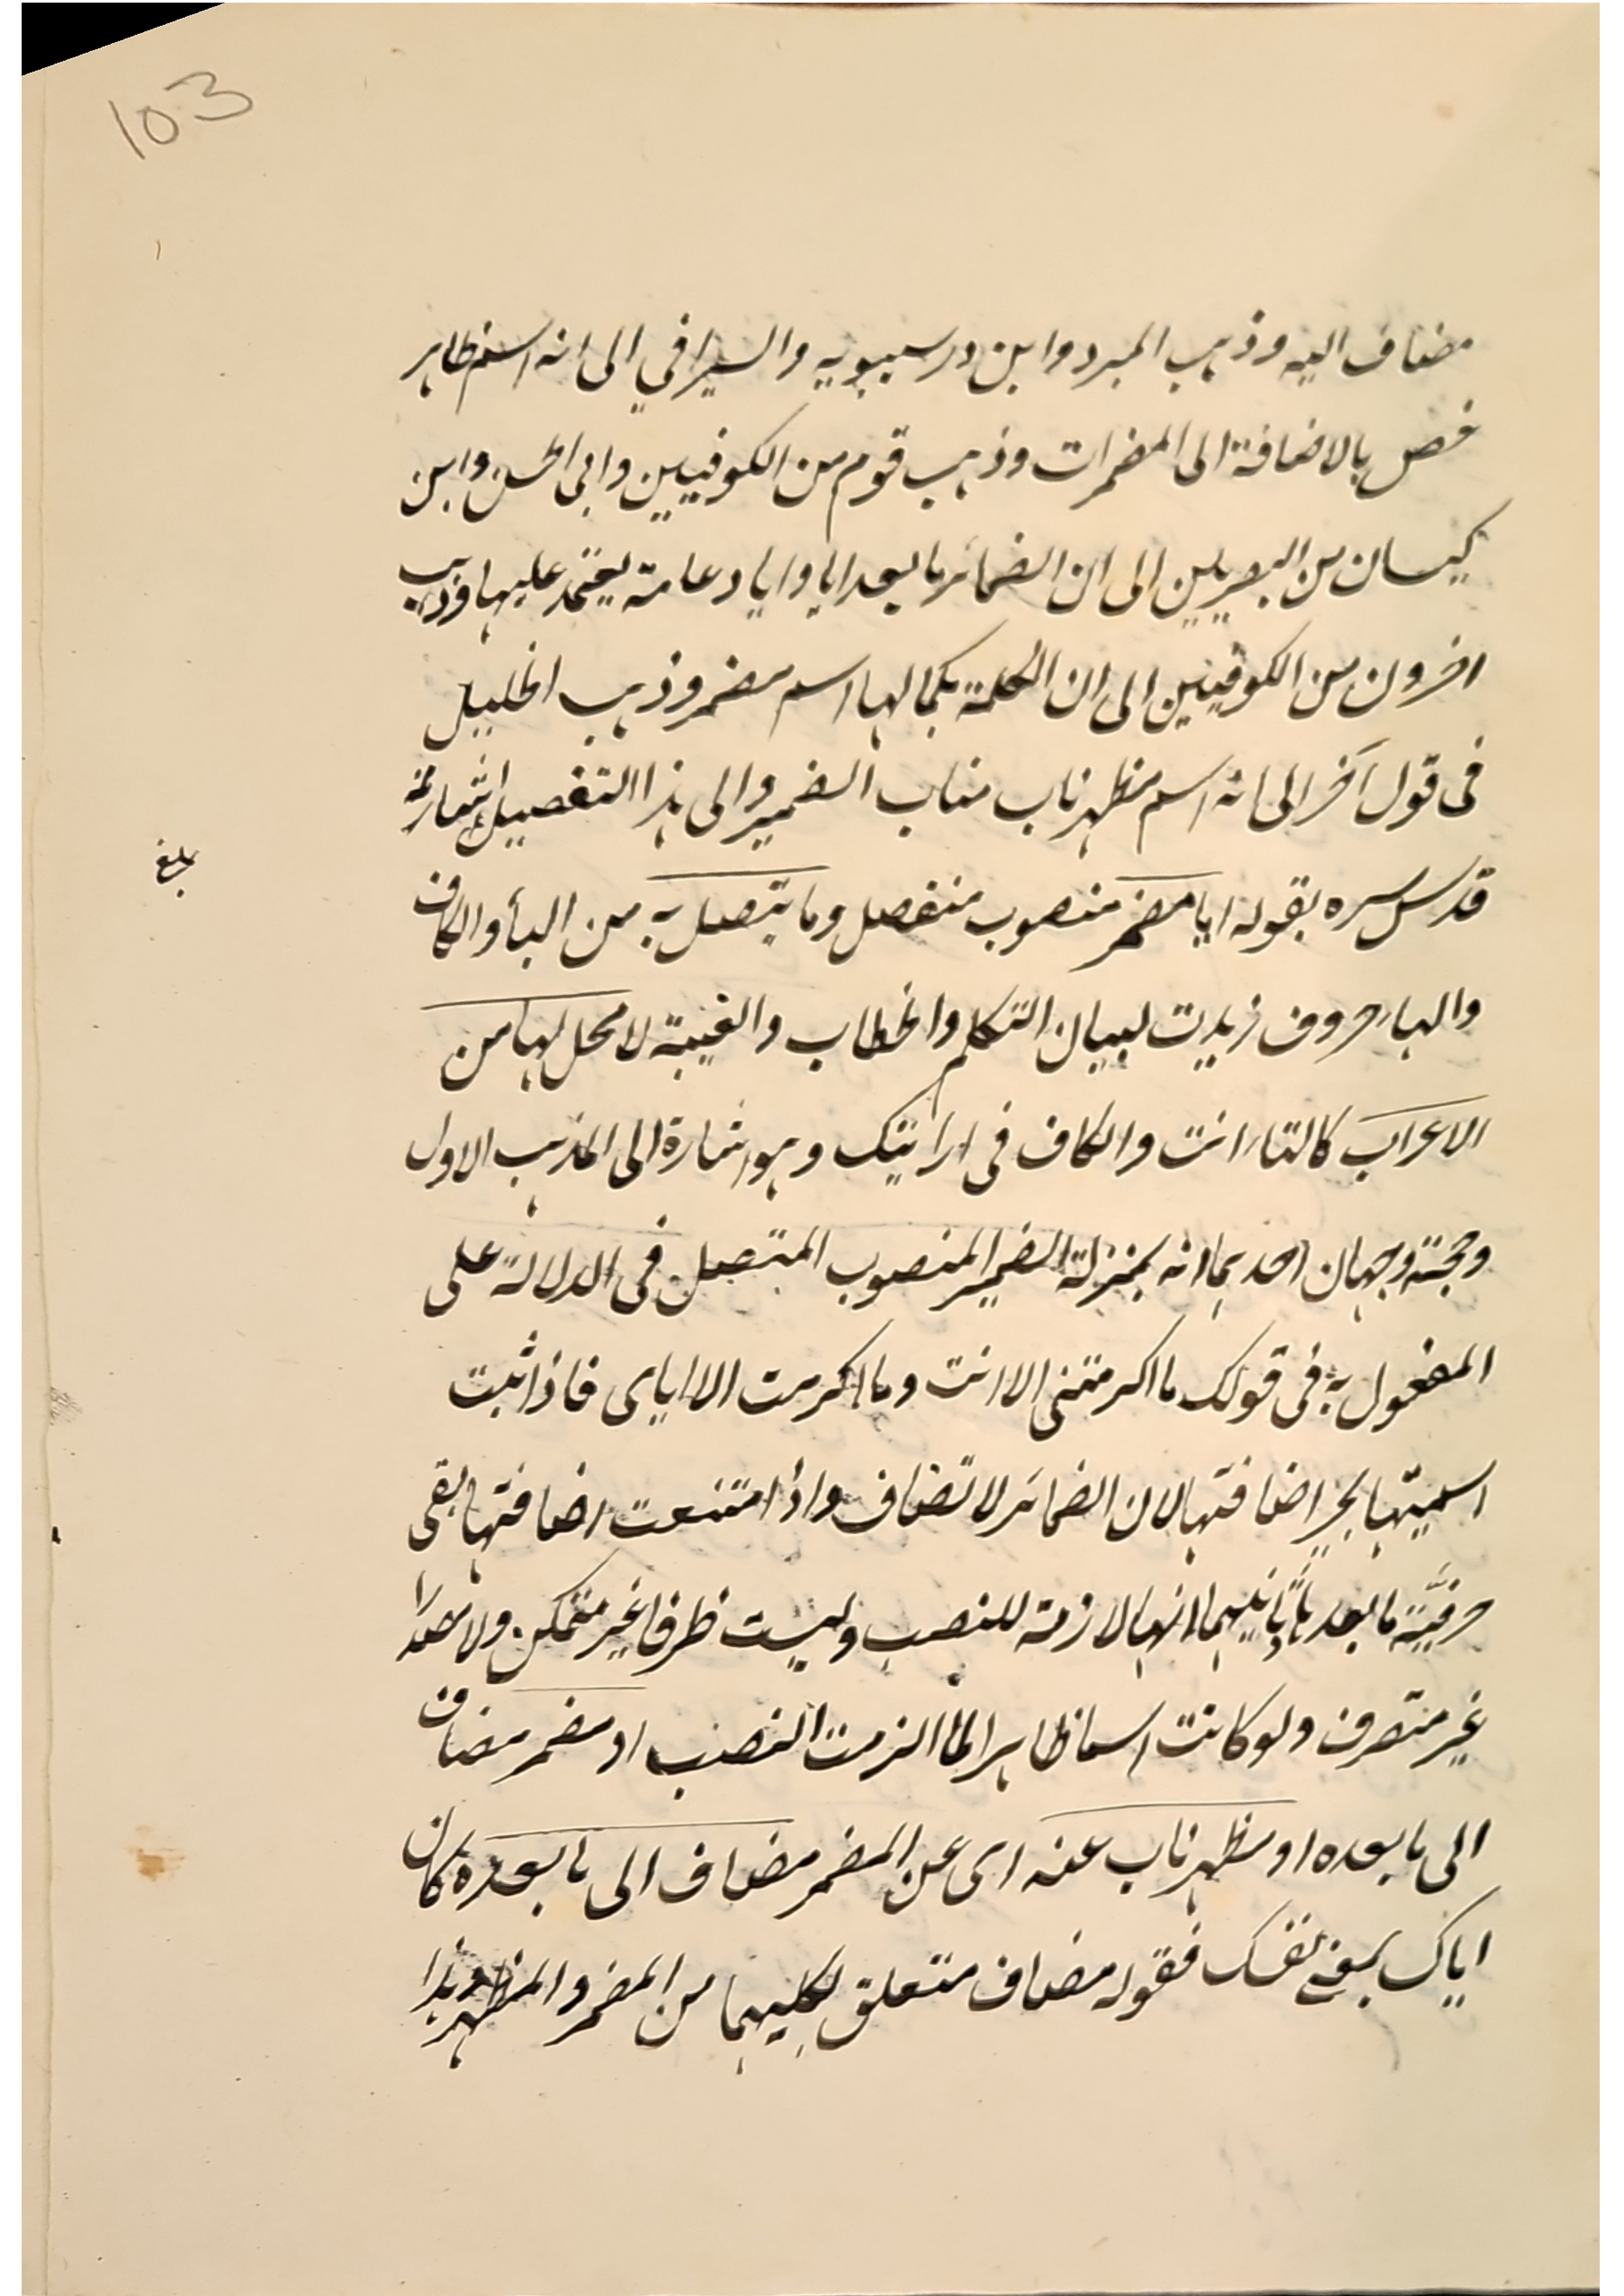 103
مضاف اليه وذهب المبرد وابن درسيبويه والسيرافي الى انه اسم ظاهر
خص بالاضافة الى المضمرات وذهب قوم من الكوفيين وابى الحسن وابن
كيسان من البصريين الى ان الضمائر ما بعد ايا وايا دعامة يعتمد عليها وذهب
اخرون من الكوفيين الى ان الكلمة بكمالها اسم مضمر وذهب الخليل
فى قول آخر الى انه اسم مظهر ناب مناب الضمير والى هذا التفصيل اشار
قدس سره بقوله ايا مضمر منصوب منفصل وما يتصل به من الياء والكاف
بلغ
والهاء حروف زيدت لبيان التكلم والخطاب والغيبة لا محل لها من
الاعراب كالتاء انت والكاف فى ارايتك وهو اشارة الى المذهب الاول
وحجته وجهان احدهما انه بمنزلة الضمير المنصوب المتصل فى الدلالة على
المفعول به فى قولك ما اكرمتنى الا انت وما اكرمت الا اياى فاذا ثبت
اسميتها اضافتها لان الضمائر لا تضاف واذا امتنعت اضافتها بقى
حرفيّة ما بعدها ثانيهما انها لازمة للنصب وليست ظرفا غير متمكن ولا مصدرا
غير متصرف ولو كانت اسما ظاهرا لما الزمت النصب او مضمر مضاف
الى ما بعده او مظهر ناب عنه اى عن المضمر مضاف الى ما بعده كان
اياك بمعنى نفسك فقوله مضاف متعلق لكليهما من المضمر والمظهر وهذا